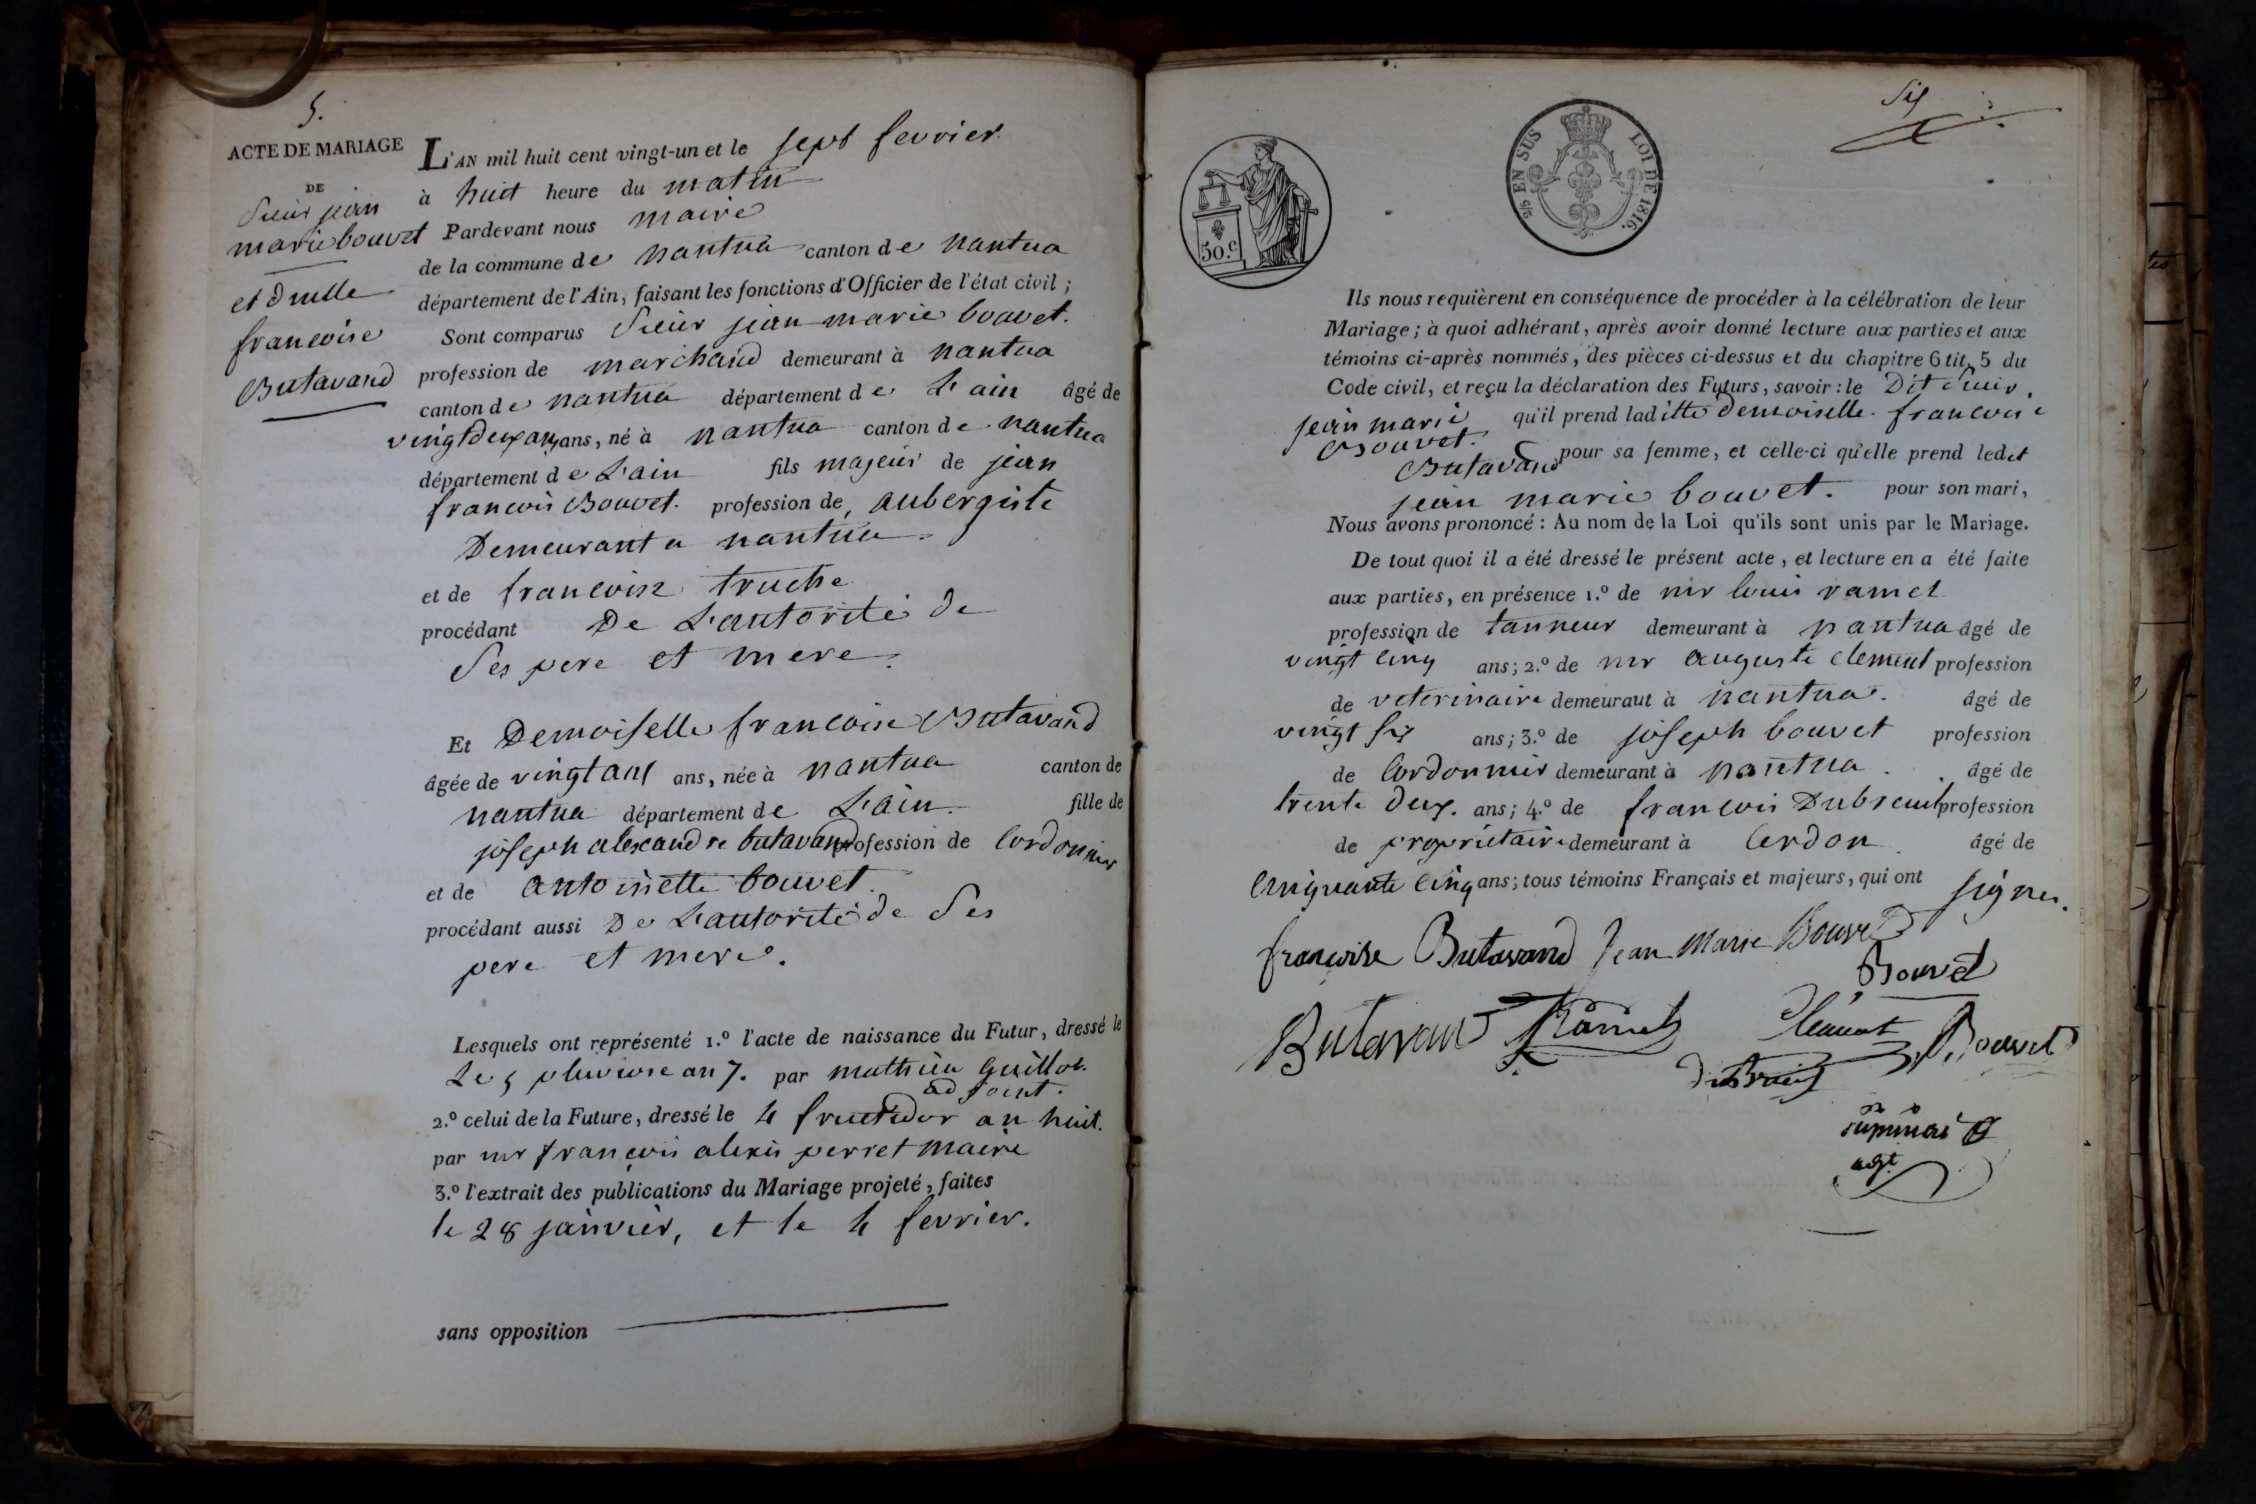 5.
ACTE DE MARIAGE
DE
Sieur jean
marie bouvet
et dmlle
francoise
Butavand
L'AN mil huit cent vingt-un et le sept fevrier
à huit heure du matin
Pardevant nous maire
de la commune de nantua canton de nantua
département de l'Ain, faisant les fonctions d'Officier de l'état civil ;
Sont comparus Sieur jean marie bouvet.
profession de marchand demeurant à nantua
canton de nantua département de L'ain âgé de
vingt deux ans ans, né à nantua canton de nantua
département de L'ain fils majeur de jean
francois Bouvet. profession de aubergiste
Demeurant a nantua.
et de francoise truche
procédant De L'autorité de
Ses pere et mere.
Et Demoiselle francoise Butavand
âgée de vingt ans ans, née à nantua canton de
nantua département de L'ain. fille de
joseph alexandre butavand profession de Cordonnier
et de antoinette bouvet.
procédant aussi De L'autorité de Ses
pere et mere.
Lesquels ont représenté 1.º l'acte de naissance du Futur, dressé le
Le 5 pluviose an 7. par mathieu Guillot
adjoint.
2.º celui de la Future, dressé le 4 fructidor an huit.
par mr françois alexis perret maire
3.º l'extrait des publications du Mariage projeté, faites
le 28 janvier, et le 4 fevrier.
sans opposition
Six
50.c
2/5 EN SUS LOI DE 1816.
Ils nous requièrent en conséquence de procéder à la célébration de leur
Mariage ; à quoi adhérant, après avoir donné lecture aux parties et aux
témoins ci-après nommés, des pièces ci-dessus et du chapitre 6 tit. 5 du
Code civil, et reçu la déclaration des Futurs, savoir : le Dit sieur
jean marie Bouvet. qu'il prend laditte demoiselle francoise
Butavand pour sa femme, et celle-ci qu'elle prend ledit
jean marie bouvet. pour son mari,
Nous avons prononcé : Au nom de la Loi qu'ils sont unis par le Mariage.
De tout quoi il a été dressé le présent acte, et lecture en a été faite
aux parties, en présence 1.º de mr louis ramel
profession de tanneur demeurant à nantua âgé de
vingt cinq ans ; 2.º de mr auguste clement profession
de veterinaire demeuraut à nantua. âgé de
vingt six ans ; 3.º de joseph bouvet profession
de Cordonnier demeurant à nantua. âgé de
trente deux. ans ; 4.º de francois Dubreuil profession
de proprietaire demeurant à Cerdon âgé de
cinquante cinq ans ; tous témoins Français et majeurs, qui ont signer.
françoise Butavand Jean Marie Bouvet
Bouvet
Butavand Ramel Clement Bouvet
duBreuil
adjt